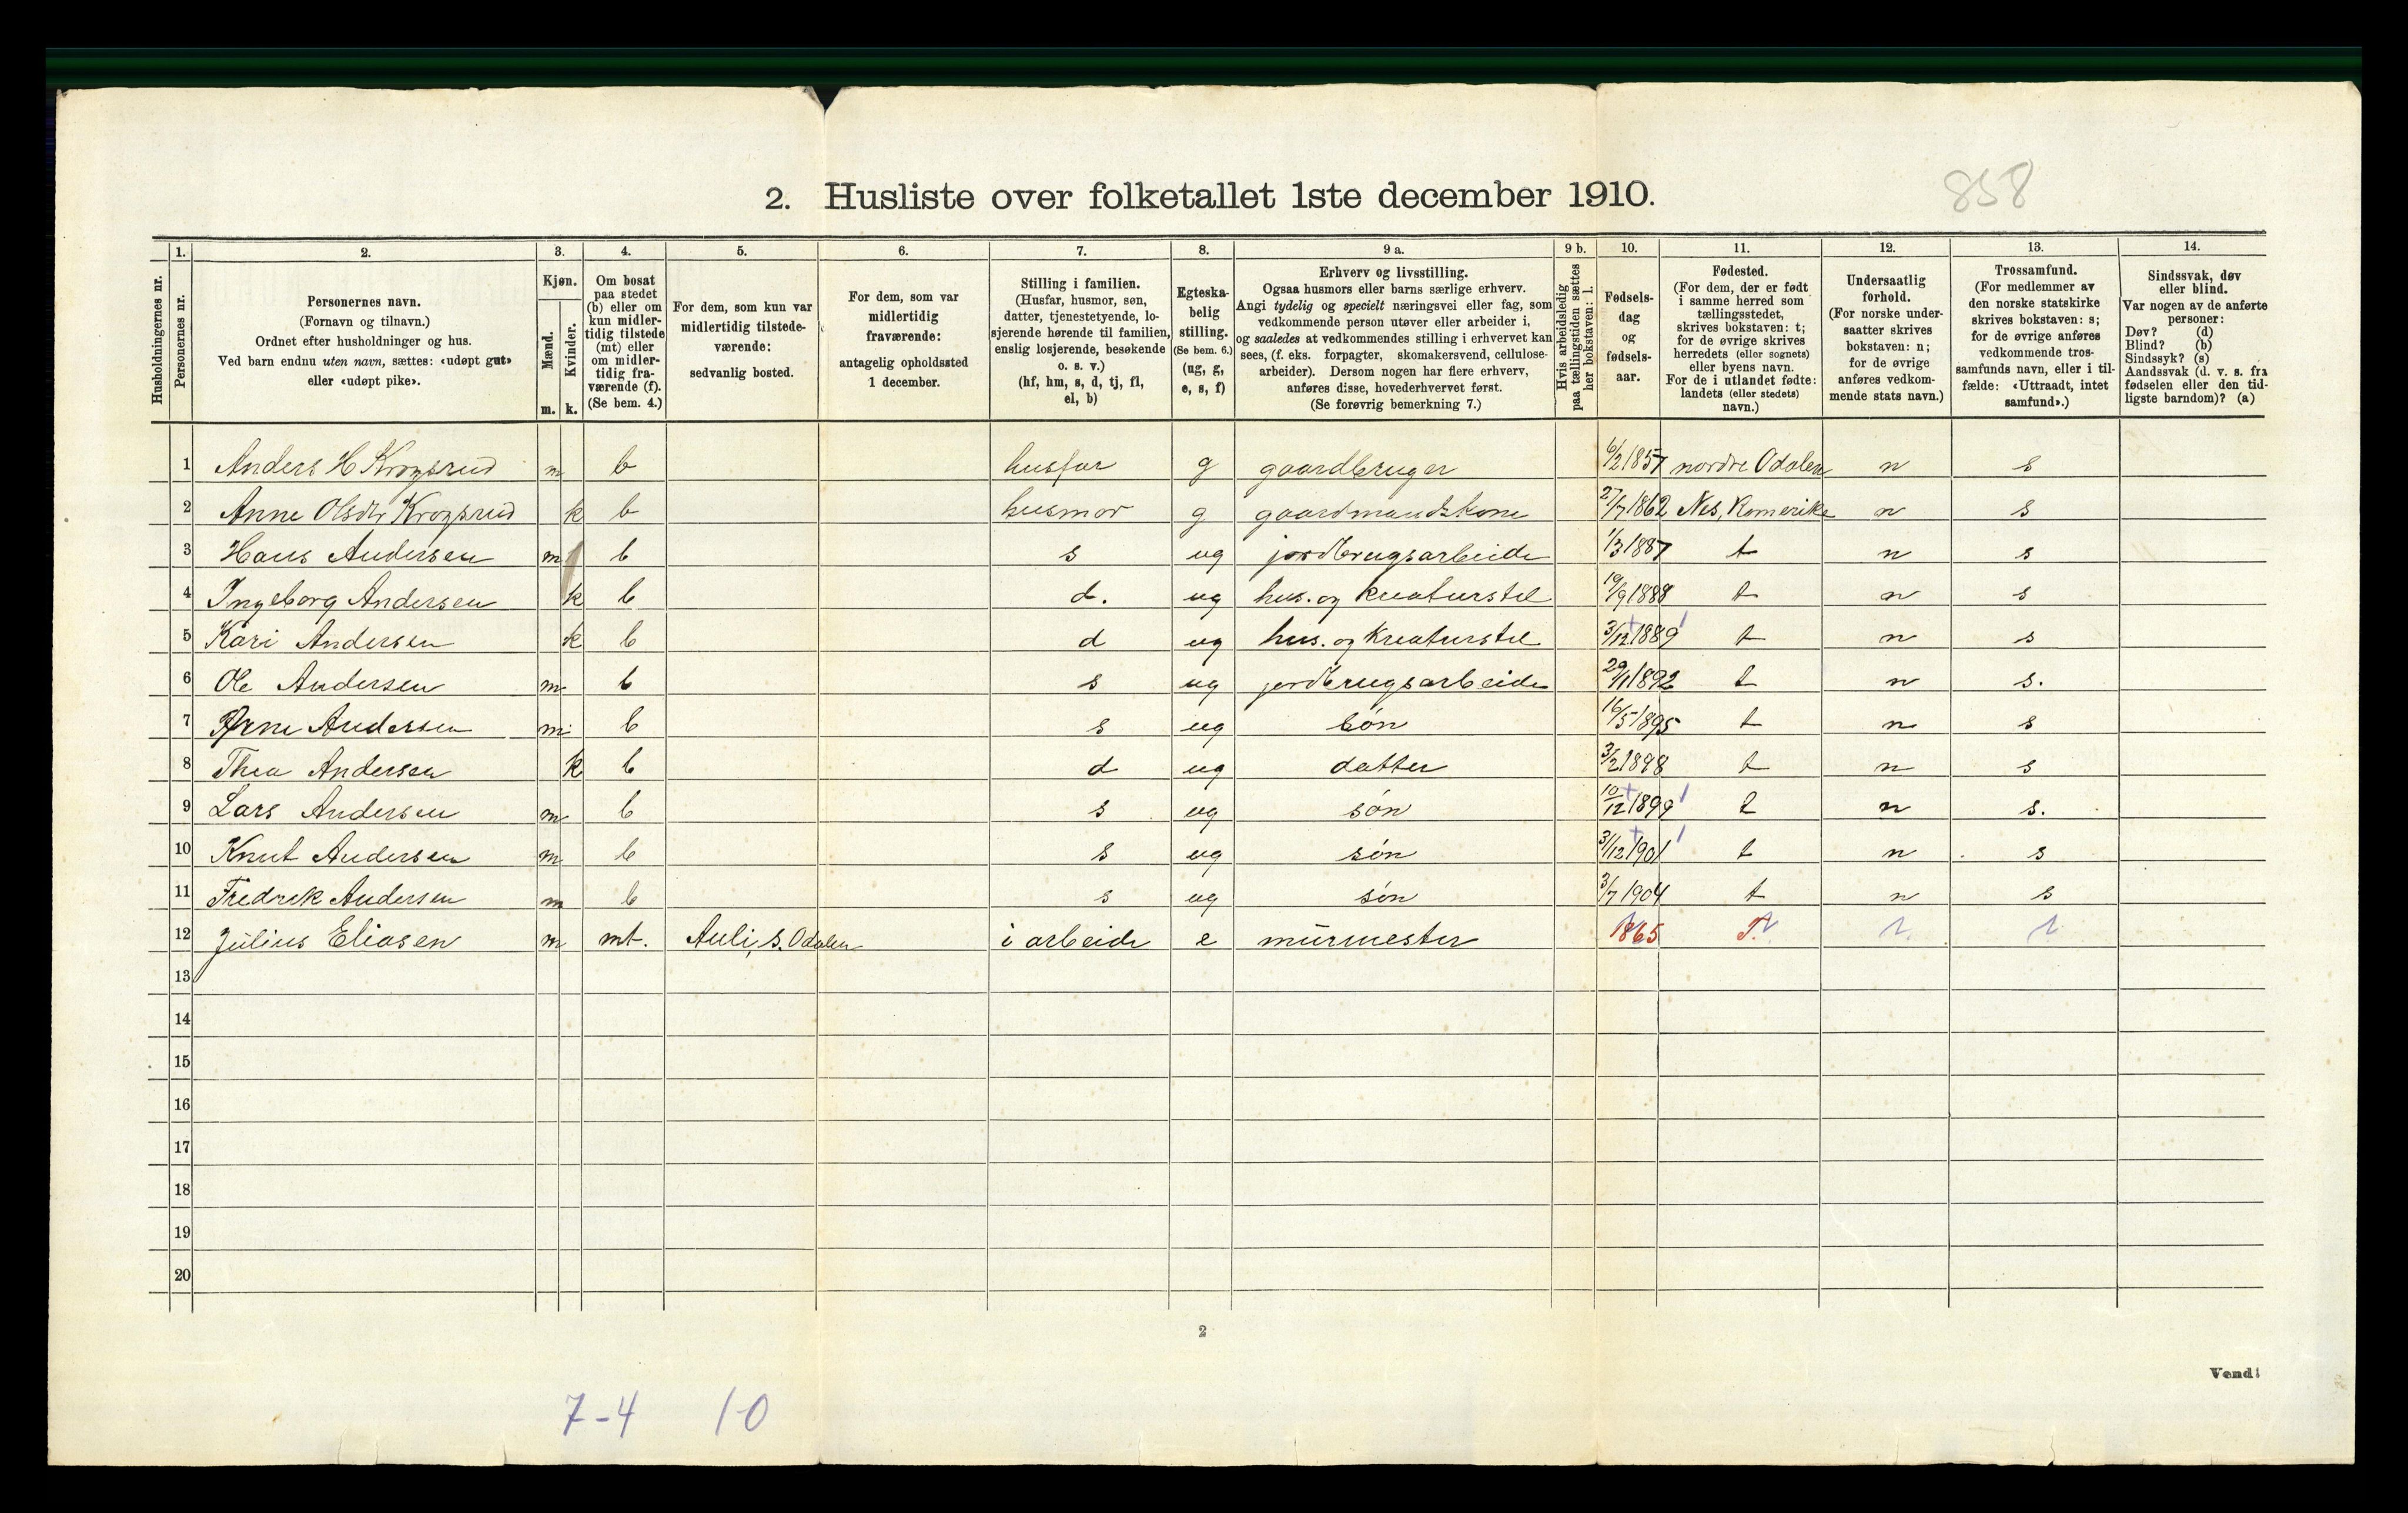 858
2. Husliste over folketallet 1ste december 1910.
Husholdningernes nr.
1. Personernes nr.
2. Personernes navn.
(Fornavn og tilnavn.)
Ordnet efter husholdninger og hus.
Ved barn endnu uten navn, sættes: «udøpt gut»
eller «udøpt pike».
3. Kjøn.
Mænd. m.
Kvinder. k.
4. Om bosat
paa stedet
(b) eller om
kun midler-
tidig tilstede
(mt) eller
om midler-
tidig fra-
værende (f).
(Se bem. 4.)
5. For dem, som kun var
midlertidig tilstede-
værende:
sedvanlig bosted.
6. For dem, som var
midlertidig
fraværende:
antagelig opholdssted
1 december.
7. Stilling i familien.
(Husfar, husmor, søn,
datter, tjenestetyende, lo-
sjerende hørende til familien,
enslig losjerende, besøkende
o. s. v.)
(hf, hm, s, d, tj, fl,
el, b)
8. Egteska-
belig
stilling.
(Se bem. 6.)
(ug, g,
e, s, f)
9 a. Erhverv og livsstilling.
Ogsaa husmors eller barns særlige erhverv.
Angi tydelig og specielt næringsvei eller fag, som
vedkommende person utøver eller arbeider i,
og saaledes at vedkommendes stilling i erhvervet kan
sees, (f. eks. forpagter, skomakersvend, cellulose-
arbeider). Dersom nogen har flere erhverv,
anføres disse, hovederhvervet først.
(Se forøvrig bemerkning 7.)
9 b. Hvis arbeidsledig
paa tællingstiden sættes
her bokstaven: l.
10. Fødsels-
dag
og
fødsels-
aar.
11. Fødested.
(For dem, der er født
i samme herred som
tællingsstedet,
skrives bokstaven: t;
for de øvrige skrives
herredets (eller sognets)
eller byens navn.
For de i utlandet fødte:
landets (eller stedets)
navn.)
12. Undersaatlig
forhold.
(For norske under-
saatter skrives
bokstaven: n;
for de øvrige
anføres vedkom-
mende stats navn.)
13. Trossamfund.
(For medlemmer av
den norske statskirke
skrives bokstaven: s;
for de øvrige anføres
vedkommende tros-
samfunds navn, eller i til-
fælde: «Uttraadt, intet
samfund».)
14. Sindssvak, døv
eller blind.
Var nogen av de anførte
personer:
Døv? (d)
Blind? (b)
Sindssyk? (s)
Aandssvak (d. v. s. fra
fødselen eller den tid-
ligste barndom)? (a)
1 Anders H Krogsrud m b husfar g gaardbruger 6/2 1857 nordre Odalen n s
2 Anne Olsdtr Krogsrud k b husmor g gaardmandskone 27/7 1862 Nes, Romerike n s
3 Hans Andersen m b s ug jordbrugsarbeide 1/3 1887 t n s
4 Ingeborg Andersen k b d. ug hus. og kreaturstel 19/9 1888 t n s
5 Kari Andersen k b d ug hus. og kreaturstel 3/12 1889 t n s
6 Ole Andersen m b s ug jordbrugsarbeide 29/11 1892 t n s.
7 Arne Andersen m b s ug søn 16/5 1895 t n s
8 Thea Andersen k b d ug datter 3/2 1898 t n s
9 Lars Andersen m b s ug søn 10/12 1899 t n s.
10 Knut Andersen m b s ug søn 31/12 1901 t n s
11 Fredrik Andersen m b s ug søn 3/7 1904 t n s
12 Julius Eliasen m mt. Auli, S. Odalen i arbeide e mürmester 1865 T.
13
14
15
16
17
18
19
20
2
Vend!
7-4 1-0